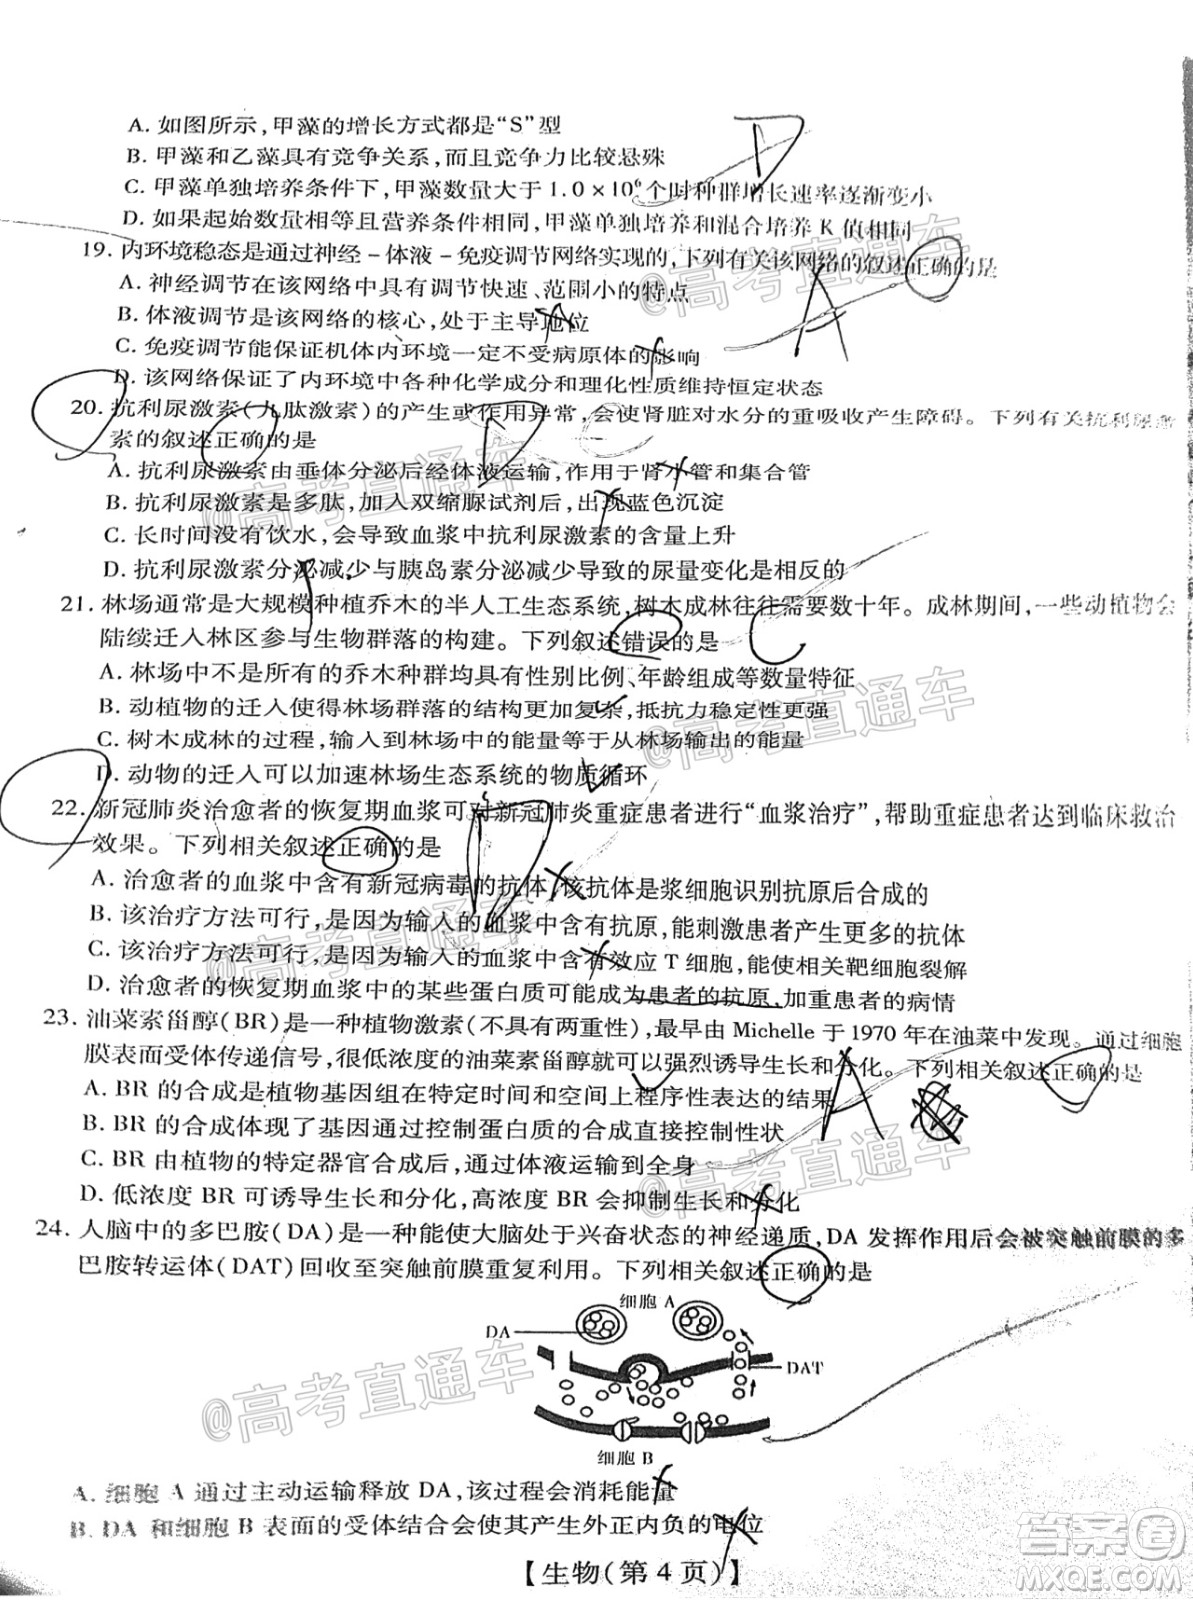 A. 如图所示,甲藻的增长方式都是“S”型
B. 甲藻和乙藻具有竞争关系,而且竞争力比较悬殊
C. 甲藻单独培养条件下,甲藻数量大于1.0×10⁶个时种群增长速率逐渐变小
D. 如果起始数量相等且营养条件相同,甲藻单独培养和混合培养 K 值相同
D
19. 内环境稳态是通过神经－体液－免疫调节网络实现的,下列有关该网络的叙述正确的是
A. 神经调节在该网络中具有调节快速、范围小的特点
B. 体液调节是该网络的核心,处于主导地位
C. 免疫调节能保证机体内环境一定不受病原体的影响
D. 该网络保证了内环境中各种化学成分和理化性质维持恒定状态
A
20. 抗利尿激素(九肽激素)的产生或作用异常,会使肾脏对水分的重吸收产生障碍。下列有关抗利尿激
素的叙述正确的是
A. 抗利尿激素由垂体分泌后经体液运输,作用于肾小管和集合管
B. 抗利尿激素是多肽,加入双缩脲试剂后,出现蓝色沉淀
C. 长时间没有饮水,会导致血浆中抗利尿激素的含量上升
D. 抗利尿激素分泌减少与胰岛素分泌减少导致的尿量变化是相反的
21. 林场通常是大规模种植乔木的半人工生态系统,树木成林往往需要数十年。成林期间,一些动植物会
陆续迁入林区参与生物群落的构建。下列叙述错误的是
C
A. 林场中不是所有的乔木种群均具有性别比例、年龄组成等数量特征
B. 动植物的迁入使得林场群落的结构更加复杂,抵抗力稳定性更强
C. 树木成林的过程,输入到林场中的能量等于从林场输出的能量
D. 动物的迁入可以加速林场生态系统的物质循环
22. 新冠肺炎治愈者的恢复期血浆可对新冠肺炎重症患者进行“血浆治疗”,帮助重症患者达到临床救治
效果。下列相关叙述正确的是
A. 治愈者的血浆中含有新冠病毒的抗体,该抗体是浆细胞识别抗原后合成的
B. 该治疗方法可行,是因为输入的血浆中含有抗原,能刺激患者产生更多的抗体
C. 该治疗方法可行,是因为输入的血浆中含有效应 T 细胞,能使相关靶细胞裂解
D. 治愈者的恢复期血浆中的某些蛋白质可能成为患者的抗原,加重患者的病情
23. 油菜素甾醇(BR)是一种植物激素(不具有两重性),最早由 Michelle 于 1970 年在油菜中发现。通过细胞
膜表面受体传递信号,很低浓度的油菜素甾醇就可以强烈诱导生长和分化。下列相关叙述正确的是
A. BR 的合成是植物基因组在特定时间和空间上程序性表达的结果
B. BR 的合成体现了基因通过控制蛋白质的合成直接控制性状
C. BR 由植物的特定器官合成后,通过体液运输到全身
D. 低浓度 BR 可诱导生长和分化,高浓度 BR 会抑制生长和分化
A
24. 人脑中的多巴胺(DA)是一种能使大脑处于兴奋状态的神经递质,DA 发挥作用后会被突触前膜的多
巴胺转运体(DAT)回收至突触前膜重复利用。下列相关叙述正确的是
细胞 A
DA
DAT
细胞 B
A. 细胞 A 通过主动运输释放 DA,该过程会消耗能量
B. DA 和细胞 B 表面的受体结合会使其产生外正内负的电位
【生物(第 4 页)】
@高考直通车
@高考直通车
@高考直通车
@高考直通车
@高考直通车
@高考直通车
答案圈
MXQE.COM